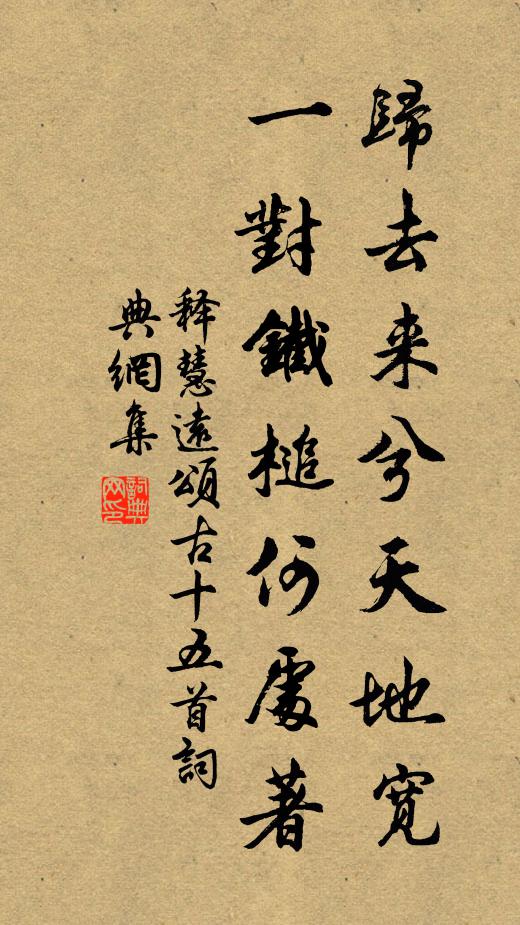 歸去来兮天地寬
一對鐵槌何處著
释慧遠頌古十五首詞
典網集
詞典网印